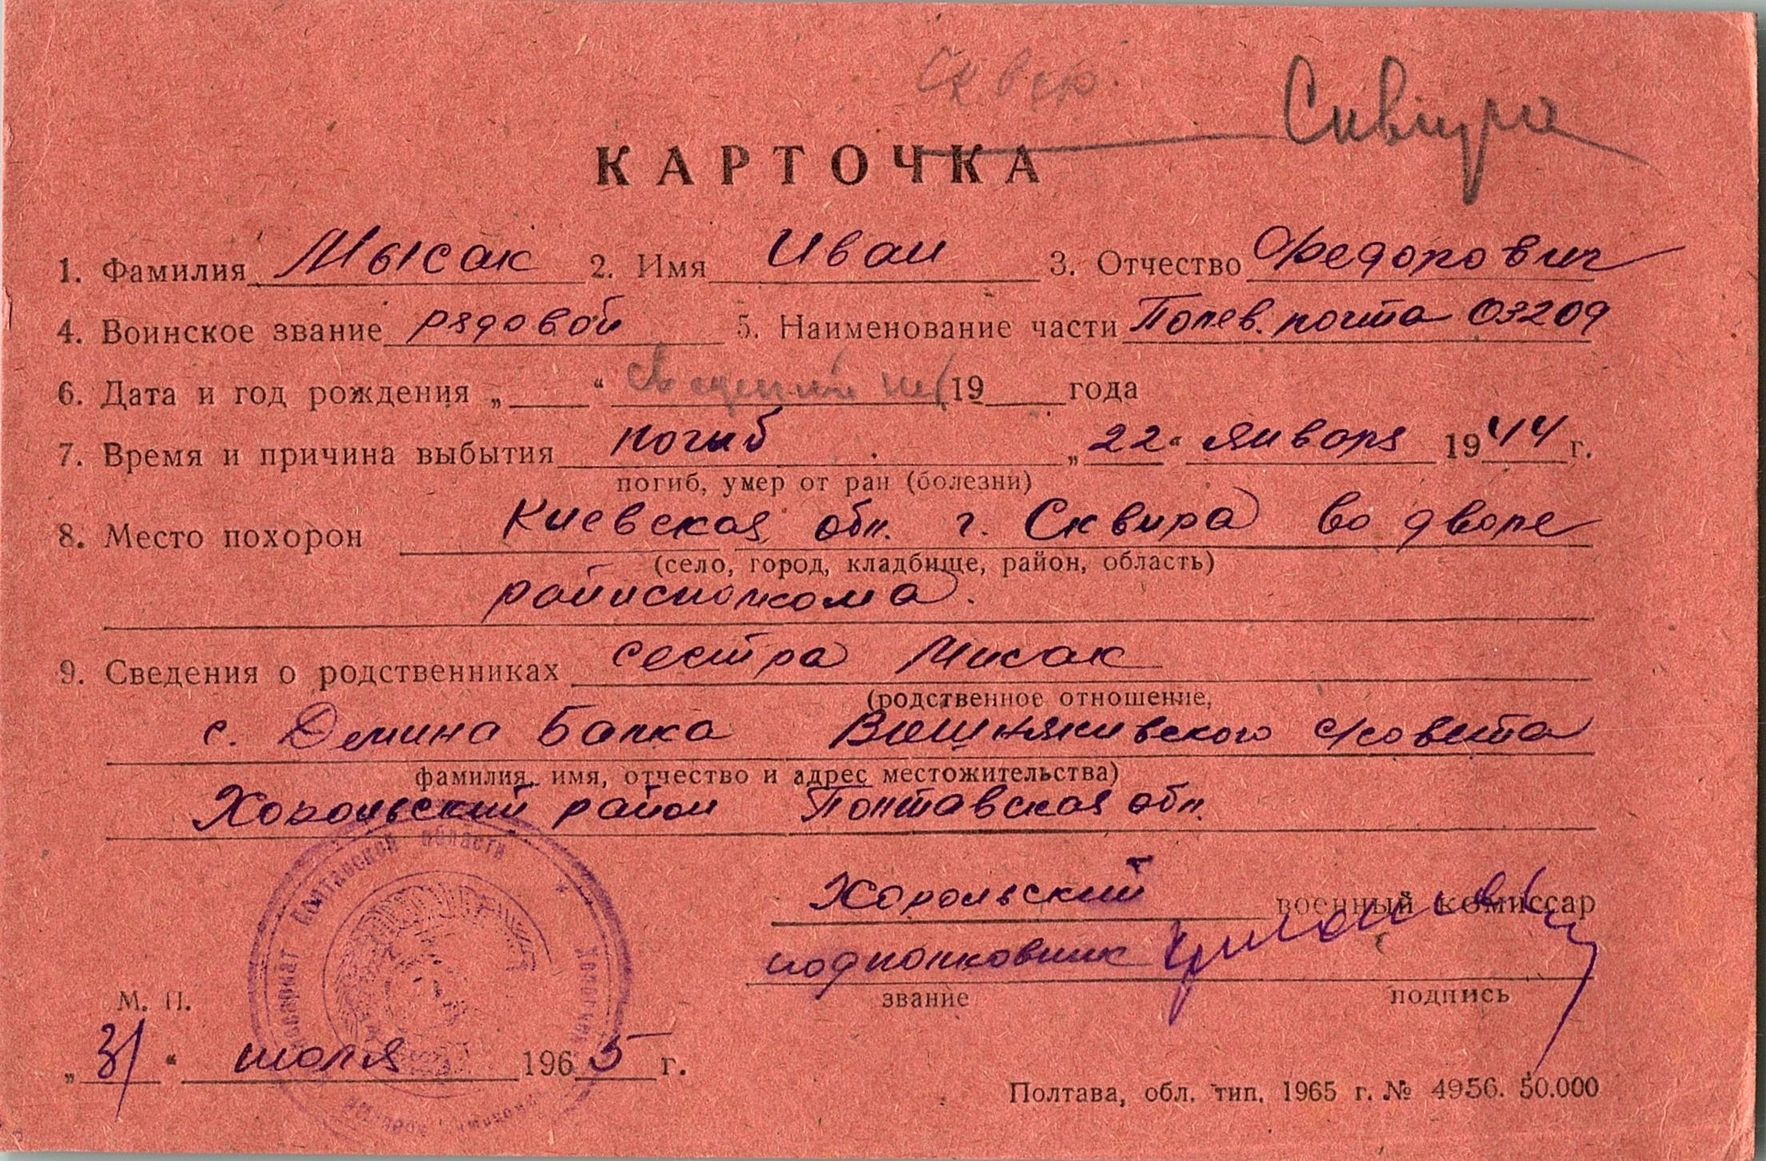 Сквир.
Сквира
КАРТОЧКА
1. Фамилия Мысак 2. Имя Иван 3. Отчество Федорович
4. Воинское звание рядовой 5. Наименование части Полев. почта 03209
6. Дата и год рождения „ “ сведений нет 19 года
7. Время и причина выбытия погиб „22“ января 1944 г.
погиб, умер от ран (болезни)
8. Место похорон Киевская обл. г. Сквира во дворе
(село, город, кладбище, район, область)
райисполкома.
9. Сведения о родственниках сестра Мисак
(родственное отношение,
с. Демина Балка Вишнякивского с/совета
фамилия, имя, отчество и адрес местожительства)
Хорольский район Полтавская обл.
Полтавской области
Хорольский военный комиссар
подполковник
М. П. звание подпись
„31“ июля 1965 г.
Полтава, обл. тип. 1965 г. № 4956. 50.000